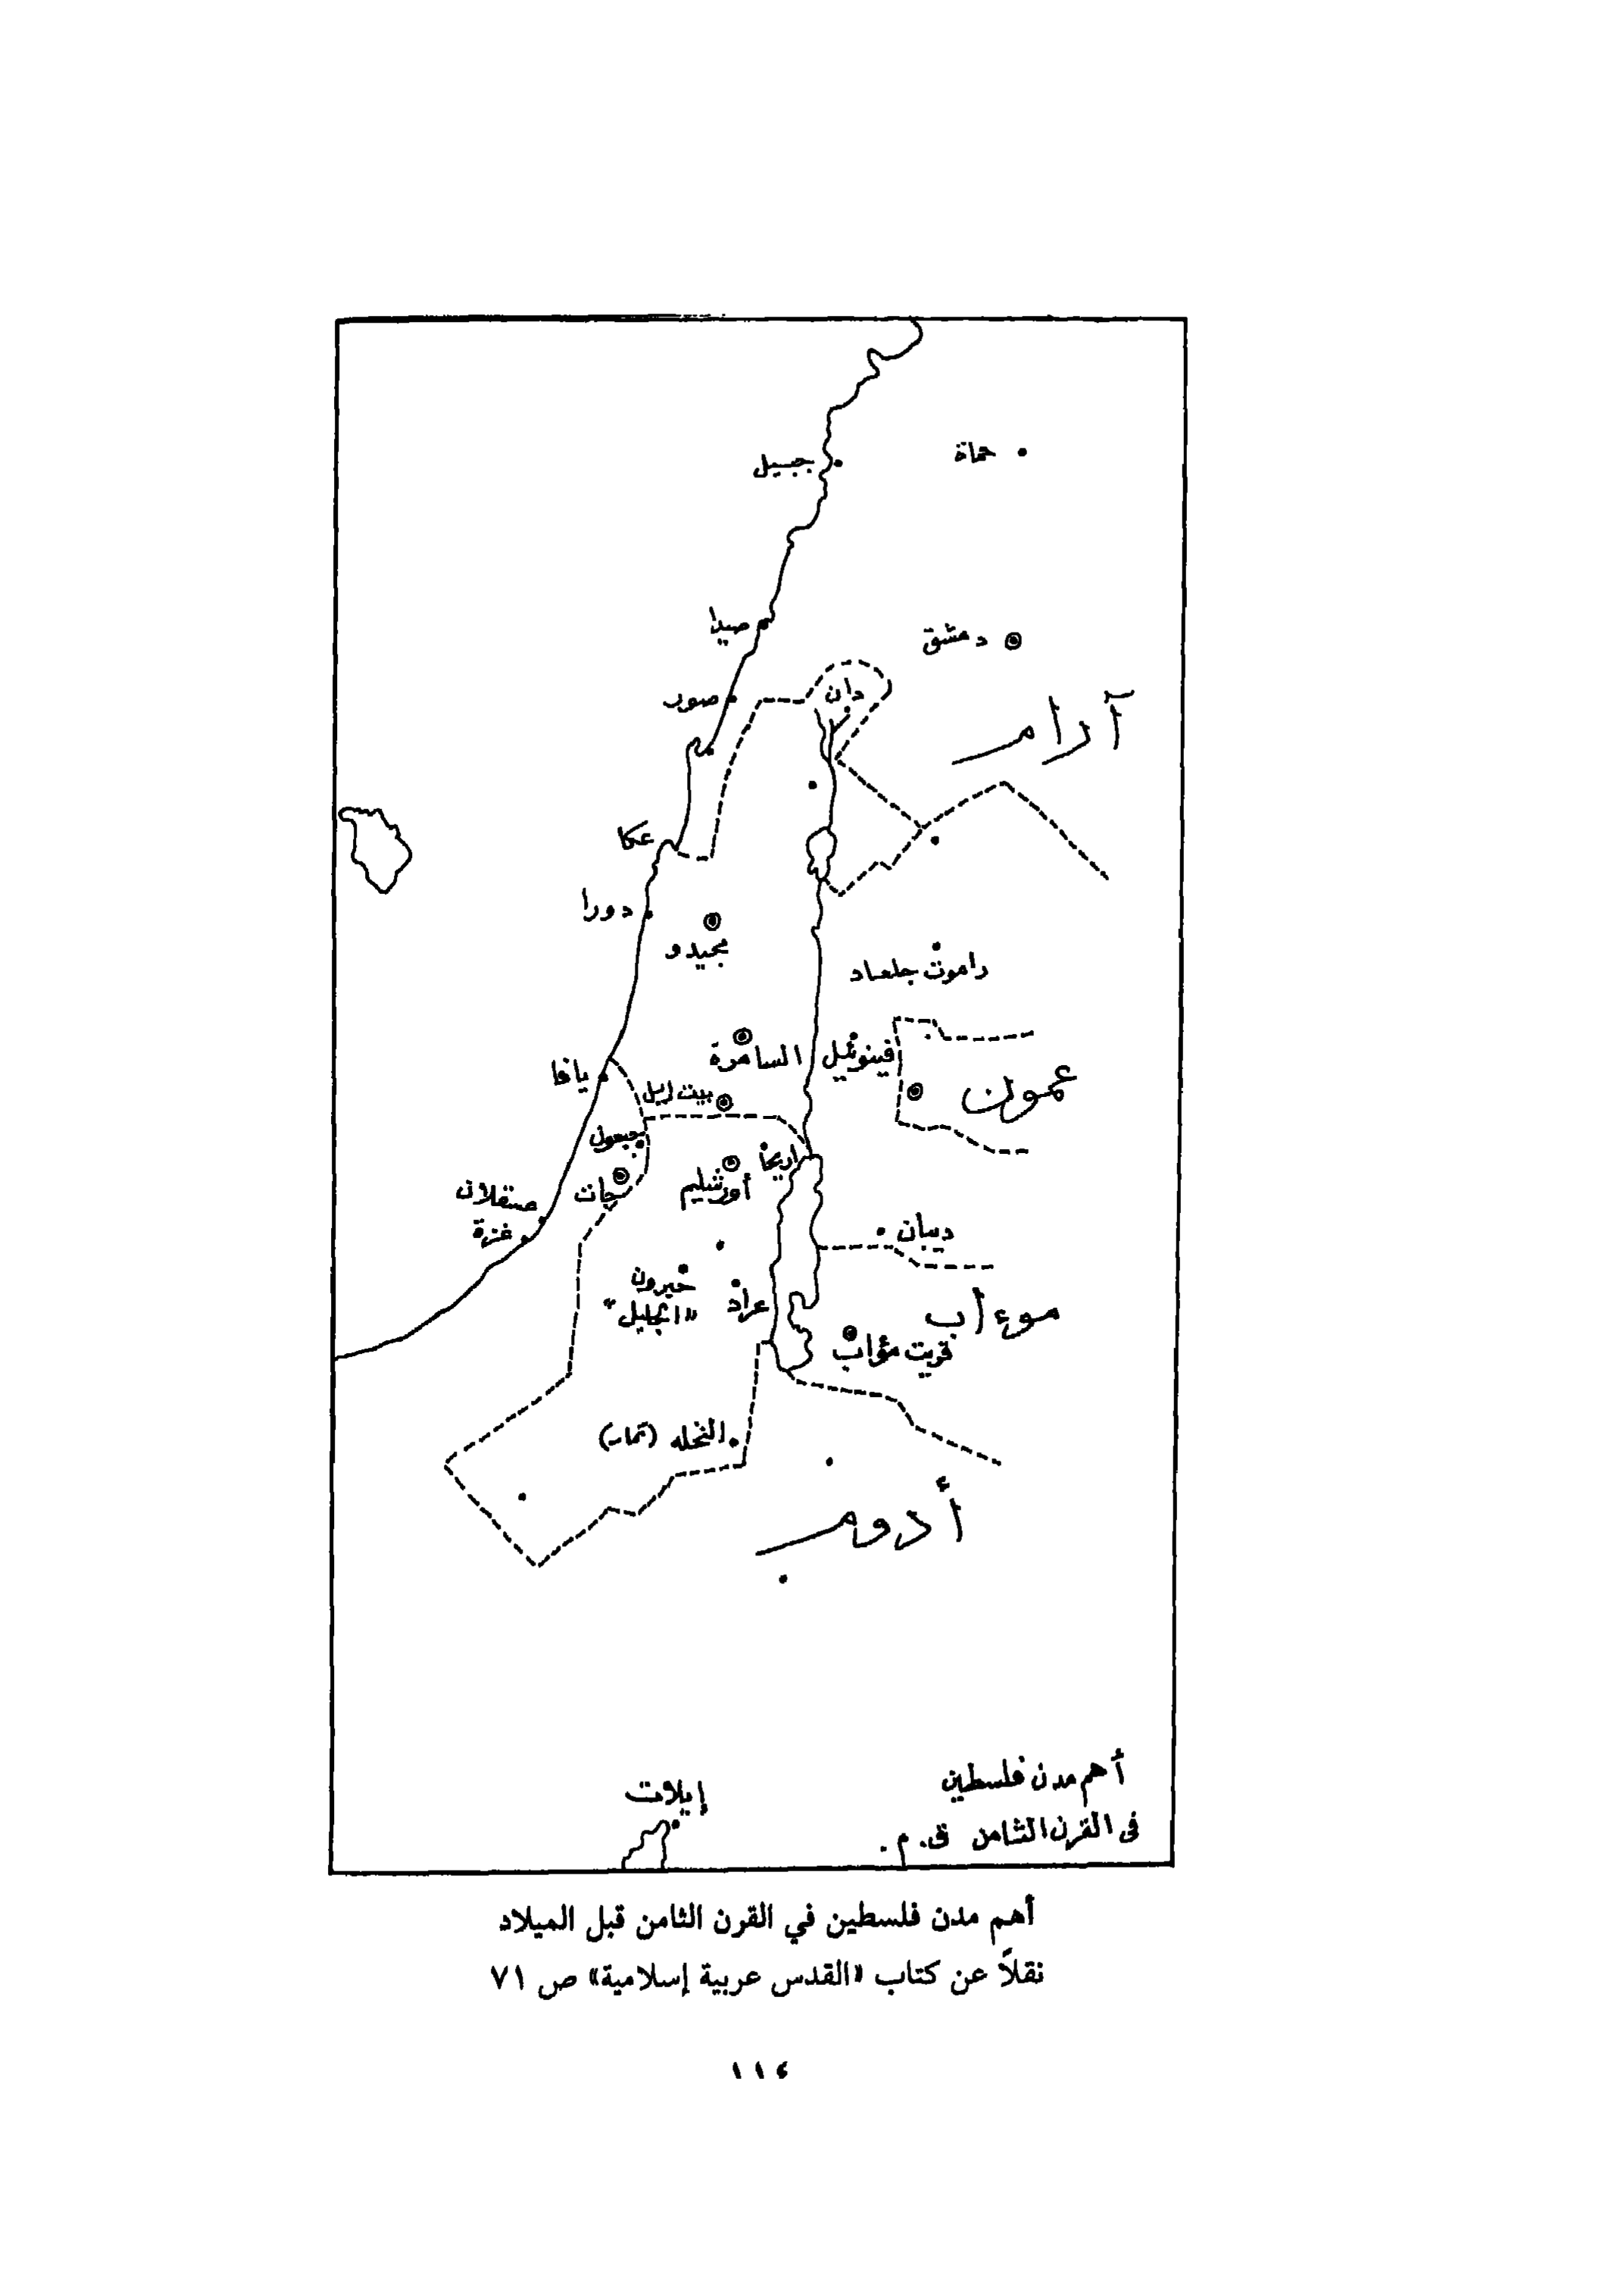 حماة
جبيل
صيدا
دمشق
دان
صور
آرام
عكا
دورا
مجيدو
راموت جلعاد
فينوئيل
السامرة
عمون
يافا
بيت ايل
جبعون
اريحا
أورشليم
جات
عسقلان
غزة
ديبان
حبرون
"الجليل"
عراد
موءاب
قريت مؤاب
النخله (تمار)
أدوم
أهم مدن فلسطين
فى القرن الثامن ق. م.
إيلات
أهم مدن فلسطين في القرن الثامن قبل الميلاد
نقلاً عن كتاب «القدس عربية إسلامية» ص ٧١
١١٤